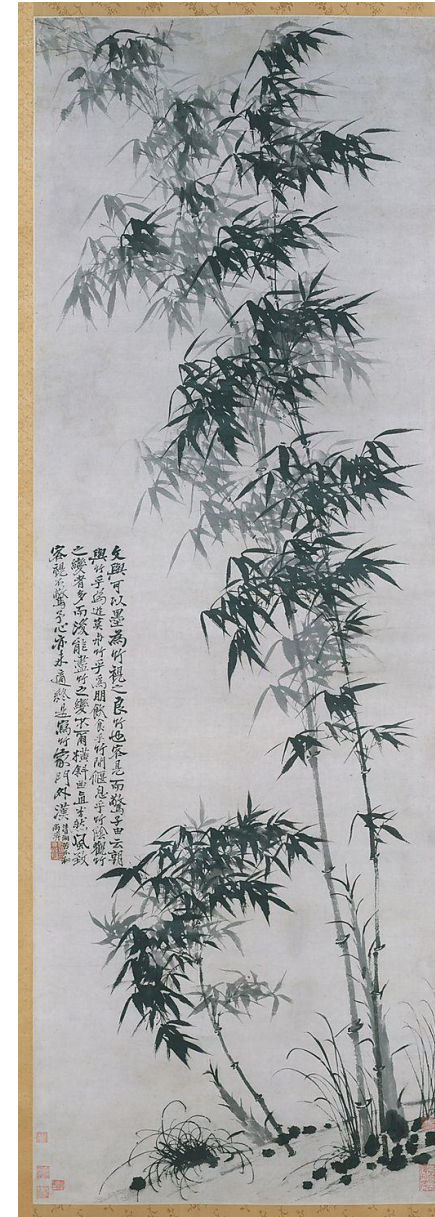 文與可以墨為竹視之良竹也客見而驚子由云朝
與竹乎為遊莫與竹乎為朋飲食乎竹間偃息乎竹陰觀竹
之變者多而後能盡竹之變不爾橫斜曲直風致
客視不驚予心亦未適終是寫竹家門外漢